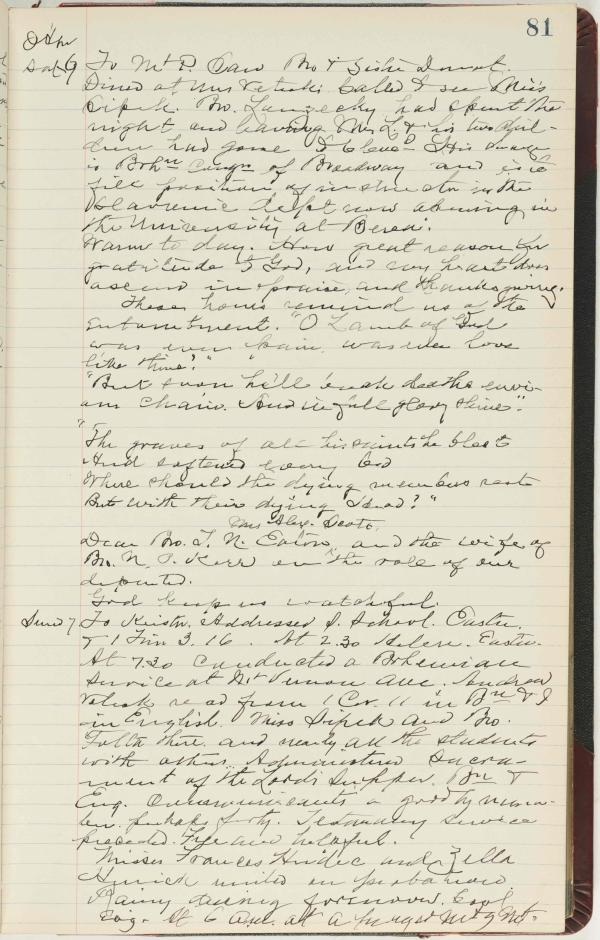 81
Sat 9 To Mt P. Saw Bro & Sister
Dined at Mrs Called to see Miss
Sipek. Bro. had spent the
night and leaving Mrs L. & his two chil-
dren had gone to Cleved. His
is Bohn Congn of Broadway and is to
fill position of instructor in the
Slavonic Dept now in
the University at Berea.
Warm to day. How great reason for
gratitude to God, and my heart does
ascend in praise and thanksgiving.
These hours remind us of the
Entombment. "O Lamb of God
was ever pain, was ever love
like thine?"
"But soon he'll break death's envi-
ous chain. And in full glory shine".
"The graves of all his saints he blest
And softened every bed
Where should the dying members rest
But with their dying Head?"
Mrs Alex. Scott,
Dear Bro. T. N. Eaton, and the wife of
Bro. N. P. Kerr on the role of our
departed.
God keep us watchful.
To Addressed S. School. Easter.
& 1 Tim 3.16. At 2.30 Easter.
At 7.30 conducted a Bohemian
Service at Mt Vernon Ave. Andrew
read from 1 Cor. 11 in Bn & I
in English. Miss Sipek and Bro.
there and nearly all the students
with others. Administered Sacra-
ment of the Lord's Supper. Bn &
Eng. Communicants a goodly num-
ber. perhaps forty. Testimony service
preceded. Free and helpful.
Misses Frances and Zella
united on probation
Rainy during forenoon. Cool
At 6 a.m. at a prayer mtg